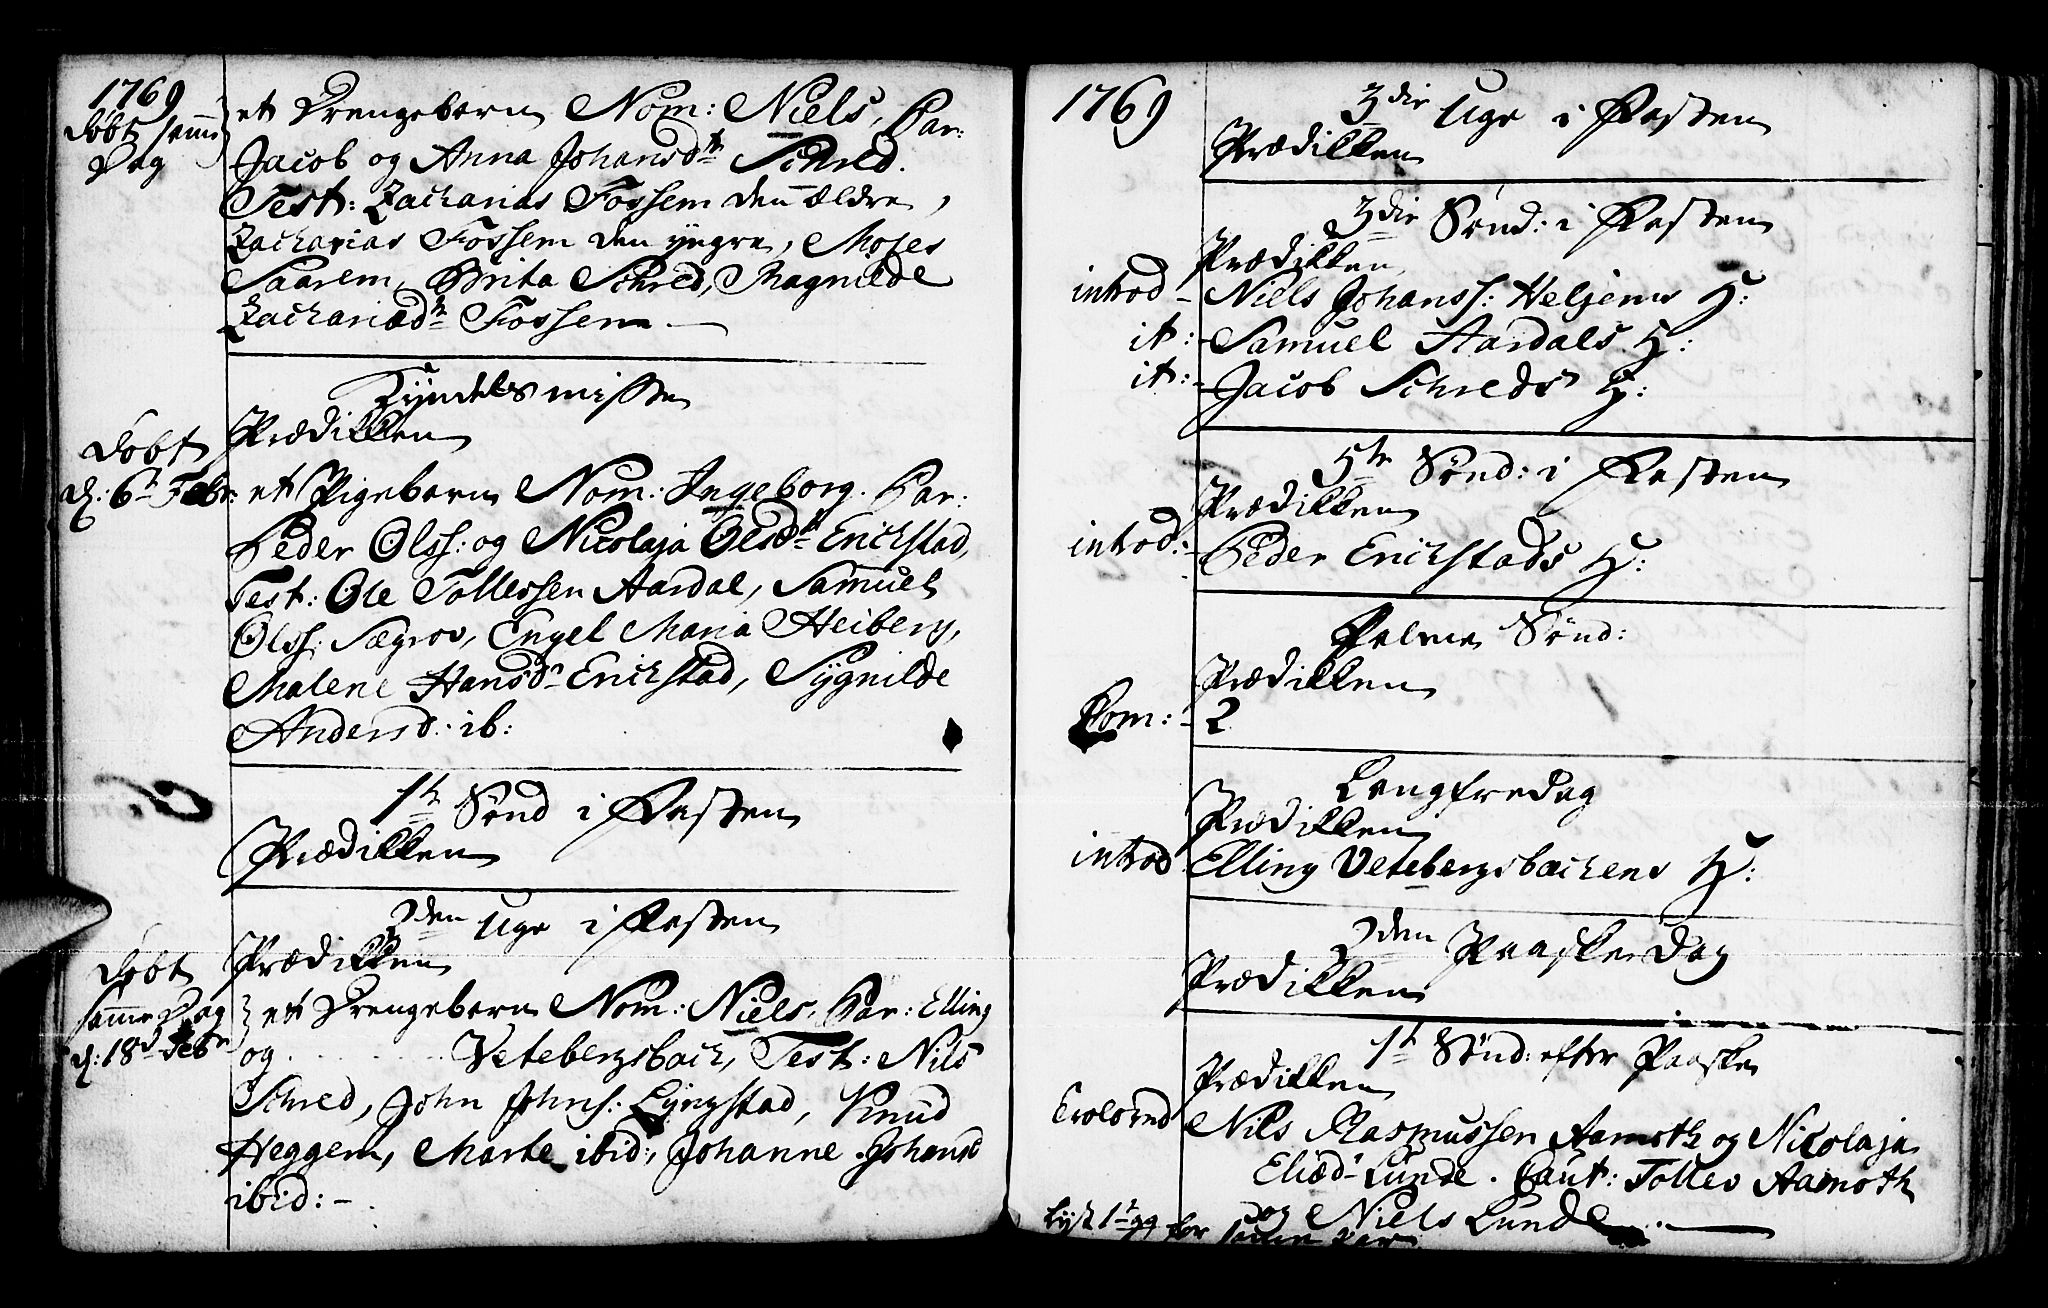 1769
døbt samme
Dag
et Drengebarn Nom: Niels, Par:
Jacob og Anna Johansdtr Schred.
Test: Zacharias Fossem den ældre,
Zacharias Fossem den yngre, Moses
Saarem, Brita Schred, Magnilde
Zachariædtr Fossem.
Kyndelsmissen
Prædiken
døbt
d: 6te Febr:
et Pigebarn Nom: Ingeborg. Par:
Peder Olss: og Nicolaja Olsdtr Erichstad,
Test: Ole Tollessen Aardal, Samuel
Olss: Sægrov, Engel Maria Heiberg,
Malene Hansdr Erichstad, Sygnilde
Andersd: ib:
1te Sønd i Fasten
Prædiken
2den Uge i Fasten
Prædiken
døbt
samme Dag
d: 18de Febr
et Drengebarn Nom: Niels, Par: Elling
og . . . . . Vetebergsbach, Test: Nils
Schred, John Johns: Lyngstad, Knud
Heggem, Marte ibid:, Johanne Johansd
ibid: -
1769
3die Uge i Fasten
Prædiken
3die Sønd: i Fasten
Prædiken
introd - Niels Johanss: Heljems H:
it: - Samuel Aardals H:
it: - Jacob Schreds H:
5te Sønd: i Fasten
Prædiken
introd: - Peder Erichstads H:
Palme Sønd:
Prædiken
Com: - 2
Langfredag
Prædiken
introd Elling Vetebergsbachens H:
2den Paaske Dag
Prædiken
1te Sønd: efter Paaske
Prædiken
Troloved Nils Rasmussen Aamoth og Nicolaja
Eliæd: Lunde. Caut: Tollev Aamoth
og Niels Lunde.
Lyst 1te gg for samme Par